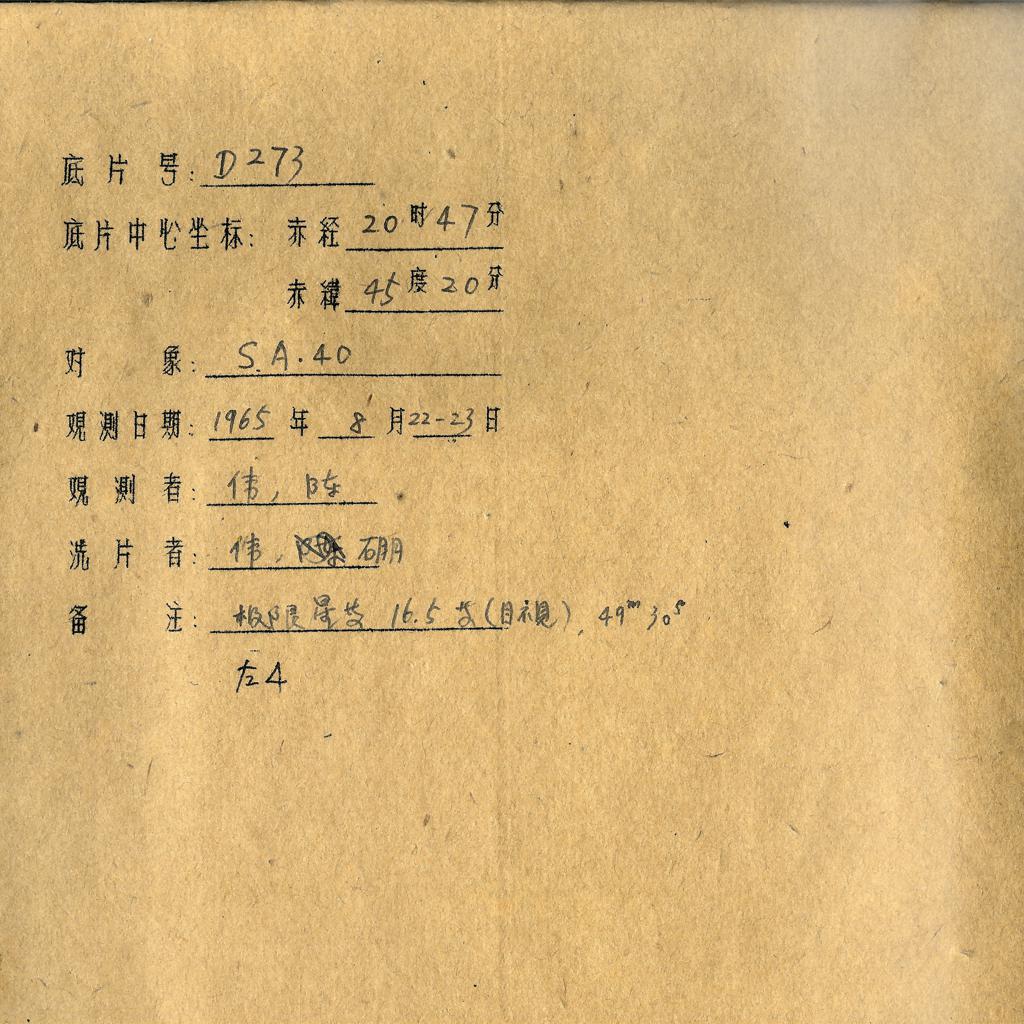 底片号: D273
底片中心坐标: 赤経 20时47分
赤緯 45度20分
对象: S.A.40
观测日期: 1965年 8月22-23日
观测者: 伟, 陈
洗片者: 伟, 硼
备注: 极限星等 16.5等(目視), 49ᵐ30ˢ
左4